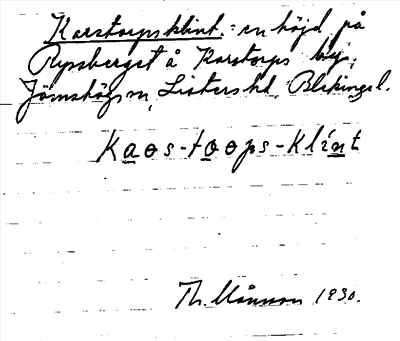 Karstorpsklint. = en höjd på
Rysberget å Karstorps by,
Jämshögs sn, Listers hd, Blekinge l.
Kaos-toops-klint
Th. Månsson 1930.